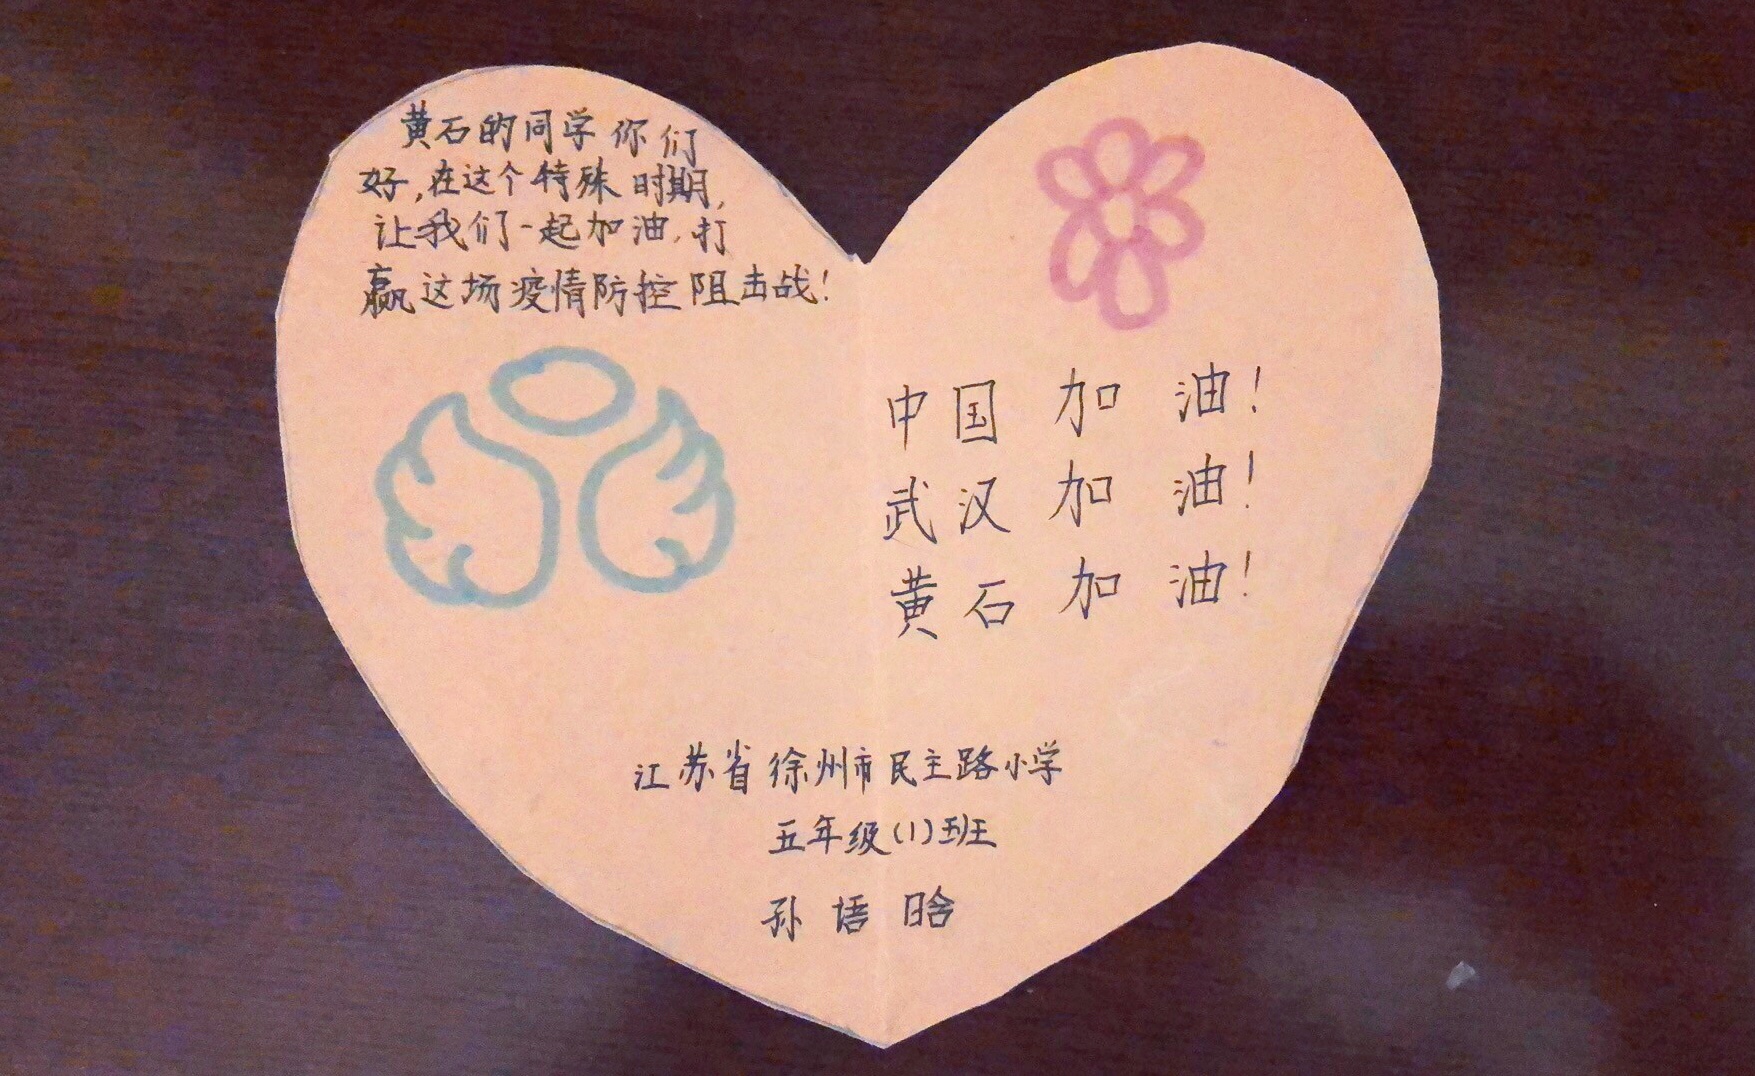 黄石的同学你们
好,在这个特殊时期,
让我们一起加油,打
赢这场疫情防控阻击战!
中国加油!
武汉加油!
黄石加油!
江苏省徐州市民主路小学
五年级(1)班
孙语晗